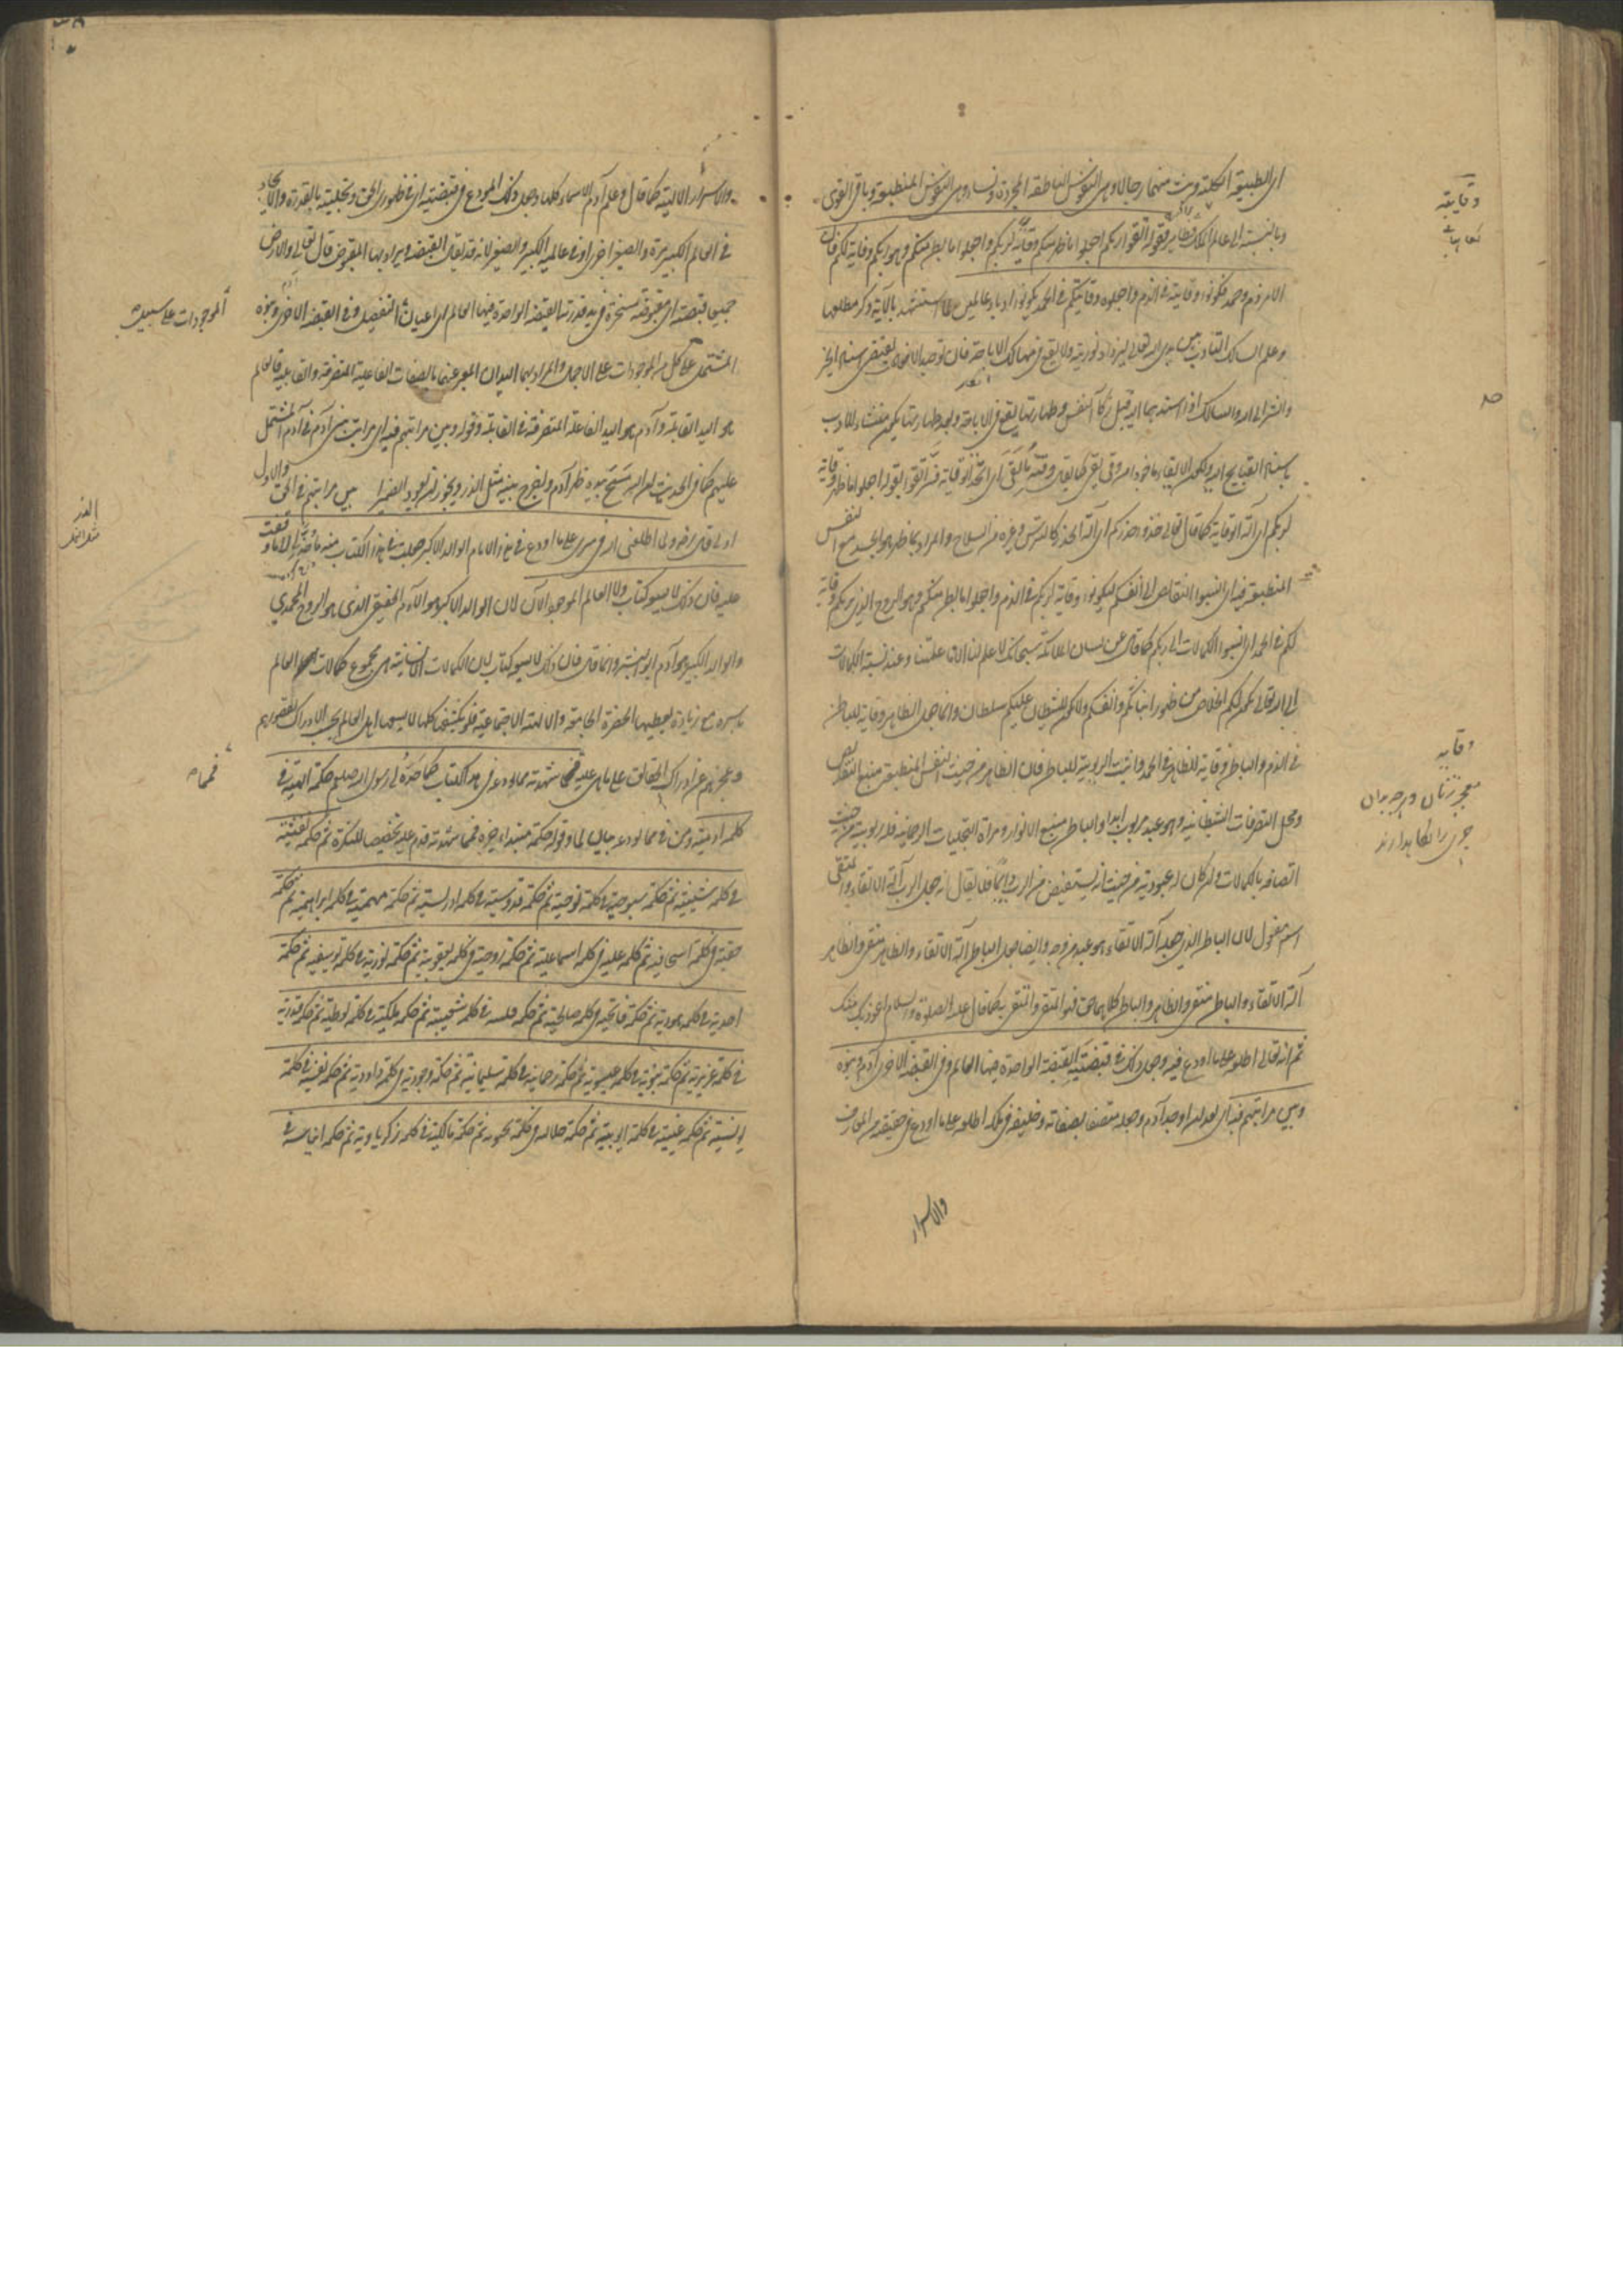 اى الطبيعة الكلية وبث منهما رجالا وهى النفوس الناطقة المجردة ونساء وهى النفوس المنطبعة وباقى القوى
وبالنسبة الى عالم الملك فظاهر فقوله اتقوا ربكم اجعلوا ما ظهر منكم وقاية لربكم واجعلوا ما بطن منكم وهو ربكم وقاية لكم فان
الامر ذم وحمد فكونوا وقايته فى الذم واجعلوه وقايتكم فى الحمد تكونوا ادباء عالمين لما استشهد بالآية وذكر مطلعها
وعلم السالك التأدب بين يدى الله تعالى ليزداد نوريته ولا يقع فى مهالك الاباحة فان توحيد الافعال يقتضى اسناد الخير
والشر الى الله والسالك اذا اسندهما اليه قبل زكاء النفس وطهارتها يقع فى الاباحة وبعد طهارتها يكون مسيئا للادب
باسناد القبايح اليه ولكون الاتقاء مأخوذا من وقى يقى كما يقال وقيته فاتقى اى اتخذ الوقاية فسر اتقوا بقوله اجعلوا ما ظهر وقاية
لربكم اى آلة الوقاية كما قال تعالى خذوا حذركم اى آلة الحذر كالترس وغيره من السلاح والمراد بما ظهر هو الجسد مع النفس
المنطبعة فيه اى انسبوا النقائص الى انفسكم لتكونوا وقاية لربكم فى الذم واجعلوا ما بطن منكم وهو الروح الذى يربكم وقاية
لكم فى الحمد اى انسبوا الكمالات الى ربكم كما قال عن لسان الملائكة سبحانك لا علم لنا الا ما علمتنا وعند نسبة الكمالات
الى الله تعالى يكون لكم الخلاص من ظهور انياتكم وانفسكم ولا يكون للشيطان عليكم سلطان وانما جعل الظاهر وقاية للباطن
فى الذم والباطن وقاية للظاهر فى الحمد واثبت الربوبية للباطن فان الظاهر من حيث النفس المنطبعة منبع النقائص
ومحل التصرفات الشيطانية وهو عبد مربوب ابدا والباطن منبع الانوار ومرآة التجليات الرحمانية فله ربوبية من حيث
اتصافه بالكمالات وان كان له عبودية من حيث انه يستفيض من الرب دائما فلا يقال انه جعل الرب آلة الاتقاء والمتقى
اسم مفعول لان الباطن الذى جعله آلة الاتقاء هو عبد من وجه وايضا جعل الباطن آلة الاتقاء والظاهر متقى والظاهر
آلة الاتقاء والباطن متقى والظاهر والباطن كلاهما حق فهو المتقى والمتقى به كما قال عليه الصلوة والسلام اعوذ بك منك
ثم انه تعالى اطلعه على ما اودع فيه وجعل ذلك فى قبضتيه القبضة الواحدة فيها العالم وفى القبضة الاخرى آدم وبنوه
وبين مراتبهم فيه اى بعد ان اوجد آدم وجعله متصفا بصفاته وخليفة فى ملكه اطلعه على ما اودع فى حقيقته من المعارف
والاسرار
وقاية
وقاية
والاسرار الالهية كما قال وعلم آدم الاسماء كلها وجعل ذلك المودع فى قبضتيه اى فى ظهورى الحق وتجليتيه بالقدرة والايجاد
فى العالم الكبير مرة والصغير اخرى او فى عالميه الكبير والصغير لانه قد يقال القبضة ويراد بها المقبوض قال تعالى والارض
جميعا قبضته اى مقبوضته مسخرة فى يد قدرته القبضة الواحدة فيها العالم اى اعيان التفصيل وفى القبضة الاخرى وبنوه
الموجودات على سبيل
المشتمل على كل من الموجودات على الاجمال والمراد بهما اليدان المعبر عنهما بالصفات الفاعلية المتصرفة والقابلية فالعالم
هو اليد القابلة وآدم هو اليد الفاعلة المتصرفة فى القابلة وقوله وبين مراتبهم فيه اى مراتب بنى آدم فى آدم المشتمل
عليهم كما فى الحديث ان الله مسح بيده ظهر آدم واخرج بنيه مثل الذر ويجوز ان يعود الضمير بين مراتبهم فى الحق والاول
اولى قال رضه ولما اطلعنى الله فى سرى على ما اودع فى هذا الامام الوالد الاكبر جعلت فى هذا الكتاب منه ما حد لى لا ما وقفت
عليه فان ذلك لا يسعه كتاب ولا العالم الموجود الآن لان الوالد الاكبر هو الآدم الحقيقى الذى هو الروح المحمدى
والوالد الكبير هو آدم ابو البشر وانما قال فان ذلك لا يسعه كتاب لان الكمالات الانسانية هى مجموع كمالات العالم
باسره مع زيادة تعطيها الحضرة الجامعة والالهية الاجتماعية فلو كشفها كلها لا يسعها اهل العالم بحسب الادراك لقصورهم
وعجزهم عن ادراك الحقائق على ما هى عليه فمما شهدته مما نودعه فى هذا الكتاب كما حده لى رسول الله صلعم حكمة الهية فى
فمما
كلمة آدمية ومن فى مما نودعه بيان لما وقوله حكمة مبتدأ خبره فمما شهدته قدم عليه تخصيصا للنكرة ثم حكمة نفثية
فى كلمة شيثية ثم حكمة سبوحية فى كلمة نوحية ثم حكمة قدوسية فى كلمة ادريسية ثم حكمة مهيمية فى كلمة ابراهيمية ثم حكمة
حقية فى كلمة اسحاقية ثم حكمة علية فى كلمة اسماعيلية ثم حكمة روحية فى كلمة يعقوبية ثم حكمة نورية فى كلمة يوسفية ثم حكمة
احدية فى كلمة هودية ثم حكمة فاتحية فى كلمة صالحية ثم حكمة قلبية فى كلمة شعيبية ثم حكمة ملكية فى كلمة لوطية ثم حكمة قدرية
فى كلمة عزيرية ثم حكمة نبوية فى كلمة عيسوية ثم حكمة رحمانية فى كلمة سليمانية ثم حكمة وجودية فى كلمة داودية ثم حكمة نفسية فى كلمة
يونسية ثم حكمة غيبية فى كلمة ايوبية ثم حكمة جلالية فى كلمة يحيوية ثم حكمة مالكية فى كلمة زكرياوية ثم حكمة ايناسية فى